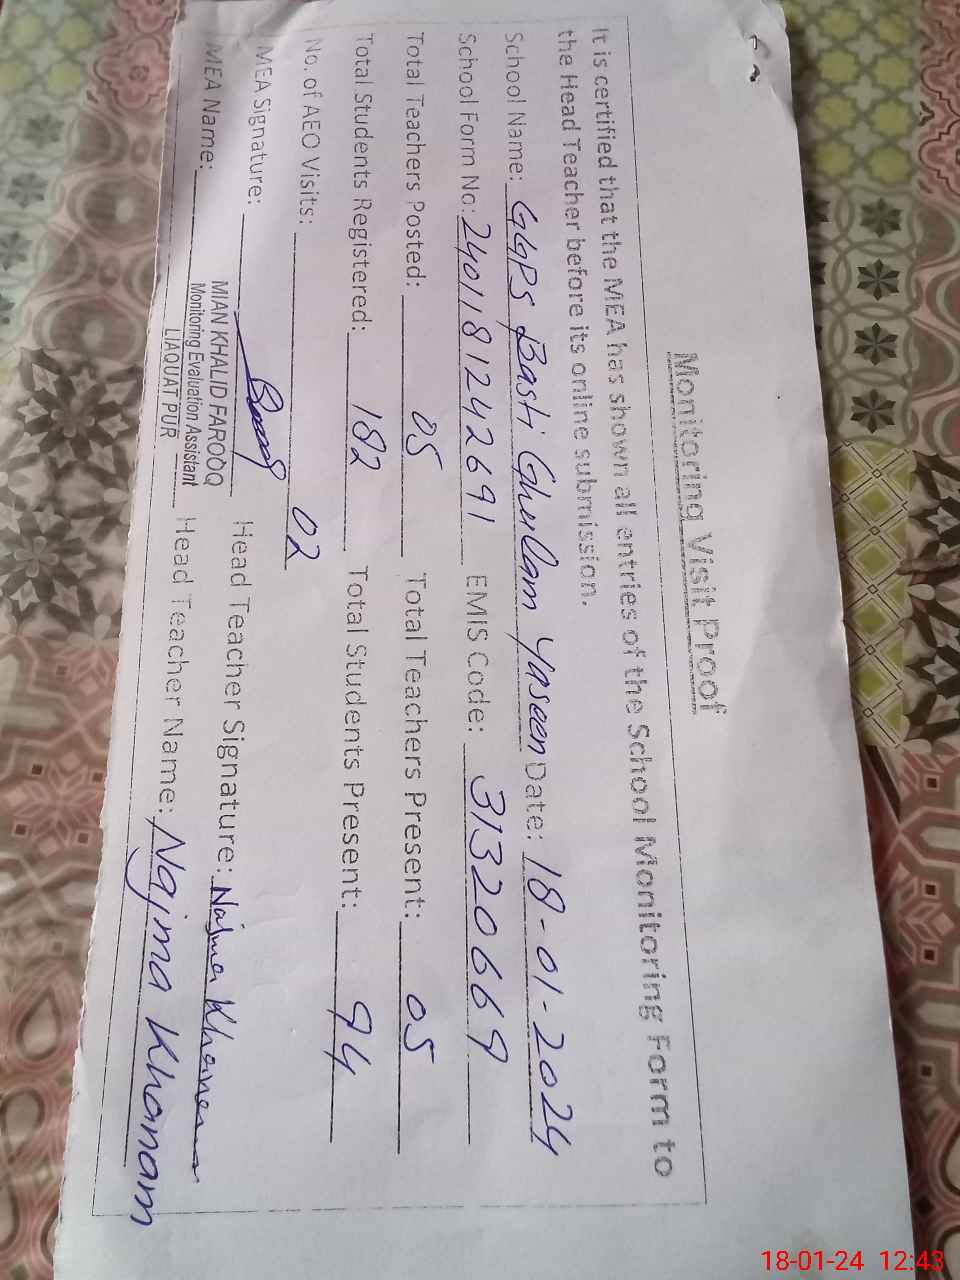 Monitoring Visit Proof
It is certified that the MEA has shown all entries of the School Monitoring Form to
the Head Teacher before its online submission.
School Name: GGPS Basti Ghullam Yaseen Date: 18-01-2024
School Form No: 2401181242691 EMIS Code: 31320669
Total Teachers Posted: 05 Total Teachers Present: 05
Total Students Registered: 182 Total Students Present: 94
No. of AEO Visits: 02
MEA Signature: Head Teacher Signature: Najma Khanam
MEA Name: MIAN KHALID FAROOQ Head Teacher Name: Najma Khanam
Monitoring Evaluation Assistant
LIAQUAT PUR
18-01-24 12:43